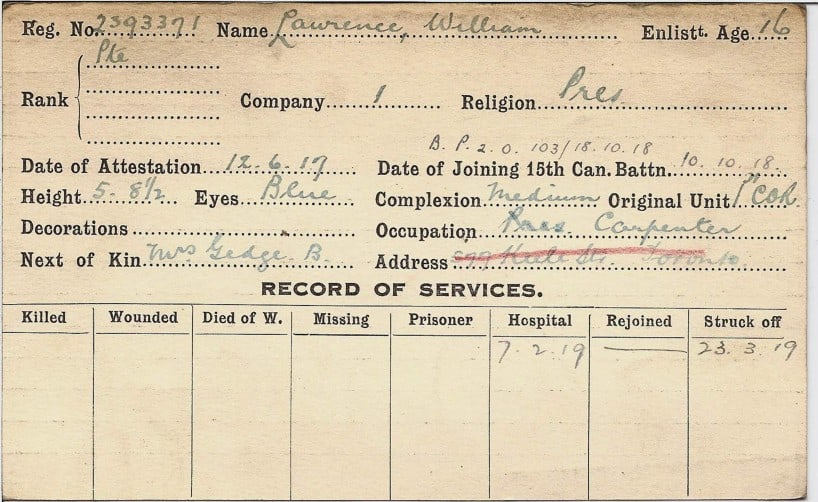 Reg. No. 2393371 Name Lawrence, William Enlistt. Age 16
Pte
Rank Company 1 Religion Pres
B. P. 2. 0. 103/18.10.18
Date of Attestation 12.6.17 Date of Joining 15th Can. Battn. 10.10.18.
Height 5-8½ Eyes Blue Complexion Medium Original Unit 1st COR
Decorations Occupation Carpenter
Next of Kin Mrs Gedge B. Address Keele St. Toronto
RECORD OF SERVICES.
Killed Wounded Died of W. Missing Prisoner Hospital Rejoined Struck off
7.2.19 23.3.19